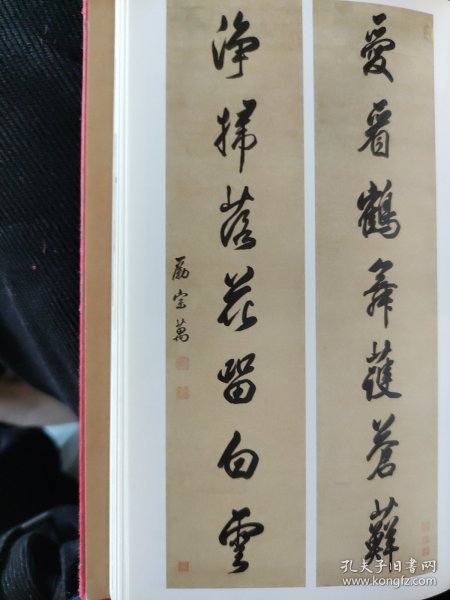 愛看鶴舞護蒼蘚
淨掃落花留白雲
勵宗萬
孔夫子旧书网
www.kongfz.com